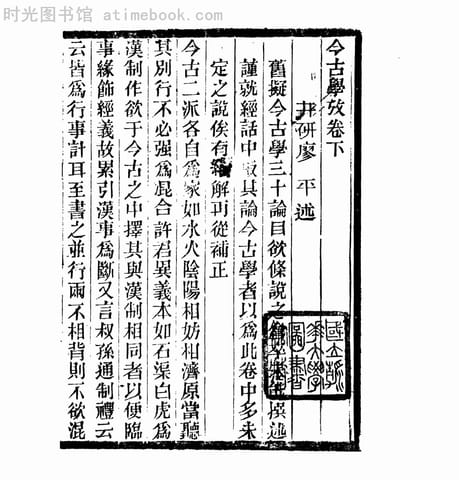 时光图书馆 - atimebook.com
今古學攷卷下
井研廖 平述
舊擬今古學三十論目欲條說之撰述
謹就經話中取其論今古學者以爲此卷中多未
定之說俟有解再從補正
今古二派各自爲家如水火陰陽相妨相濟原當聽
其別行不必強爲混合許君異義本如石渠白虎爲
漢制作欲于今古之中擇其與漢制相同者以便臨
事緣飾經義故累引漢事爲斷又言叔孫通制禮云
云皆爲行事計耳至書之並行兩不相背則不欲混